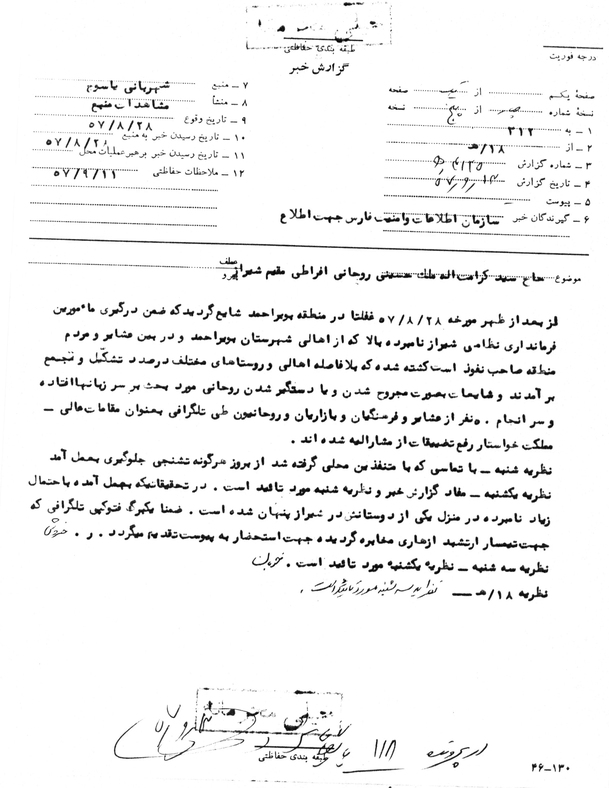 خیلی محرمانه
طبقه بندی حفاظتی
گزارش خبر
درجه فوریت
صفحه یکم از یک صفحه
نسخه شماره از پنج نسخه
۱ ــ به ۳۱۲
۲ ــ از ۱۸/هـ
۳ ــ شماره گزارش
۴ ــ تاریخ گزارش
۵ ــ پیوست
۶ ــ گیرندگان خبر سازمان اطلاعات وامنیت فارس جهت اطلاع
۷ ــ منبع شهربانی یاسوج
۸ ــ منشأ مشاهدات منبع
۹ ــ تاریخ وقوع ۵۷/۸/۲۸
۱۰ ــ تاریخ رسیدن خبر به منبع ۵۷/۸/۲۸
۱۱ ــ تاریخ رسیدن خبر برهبر عملیات محل
۱۲ ــ ملاحظات حفاظتی ۵۷/۹/۱۱
موضوع حاج سید کرامت اله ملک حسینی روحانی افراطی مقیم شیراز
عطف
پیرو
از بعد از ظهر مورخه ۵۷/۸/۲۸ غفلتا در منطقه بویراحمد شایع گردیدکه ضمن درگیری مأمورین
فرمانداری نظامی شیراز نامبرده بالا که از اهالی شهرستان بویراحمد و در بین عشایر و مردم
منطقه صاحب نفوذ است کشته شده که بلافاصله اهالی و روستاهای مختلف درصدد تشکیل و تجمع
بر آمدند و شایعات بصورت مجروح شدن و یا دستگیر شدن روحانی مورد بحث بر سر زبانها افتاده
و سر انجام ۵۰ نفر از عشایر و فرهنگیان و بازاریان و روحانیون طی تلگرافی بعنوان مقامات عالی ــ
مملکت خواستار رفع تضییقات از مشارالیه شده اند .
نظریه شنبه ــ با تماسی که با متنفذین محلی گرفته شد از بروز هرگونه تشنجی جلوگیری بعمل آمد
نظریه یکشنبه ــ مفاد گزارش خبر و نظریه شنبه مورد تائید است . در تحقیقاتیکه بعمل آمده باحتمال
زیاد نامبرده در منزل یکی از دوستانش در شیراز پنهان شده است . ضمنا یکبرگ فتوکپی تلگرافی که
جهت تیمسار ارتشبد ازهاری مخابره گردیده جهت استحضار به پیوست تقدیم میگردد . ر .
نظریه سه شنبه ــ نظریه یکشنبه مورد تائید است .
نظریه ۱۸/هـ ــ نظریه سه شنبه مورد تائید است .
خیلی محرمانه
طبقه بندی حفاظتی
در پرونده ۱۱۸
۴۶ــ۱۳۰